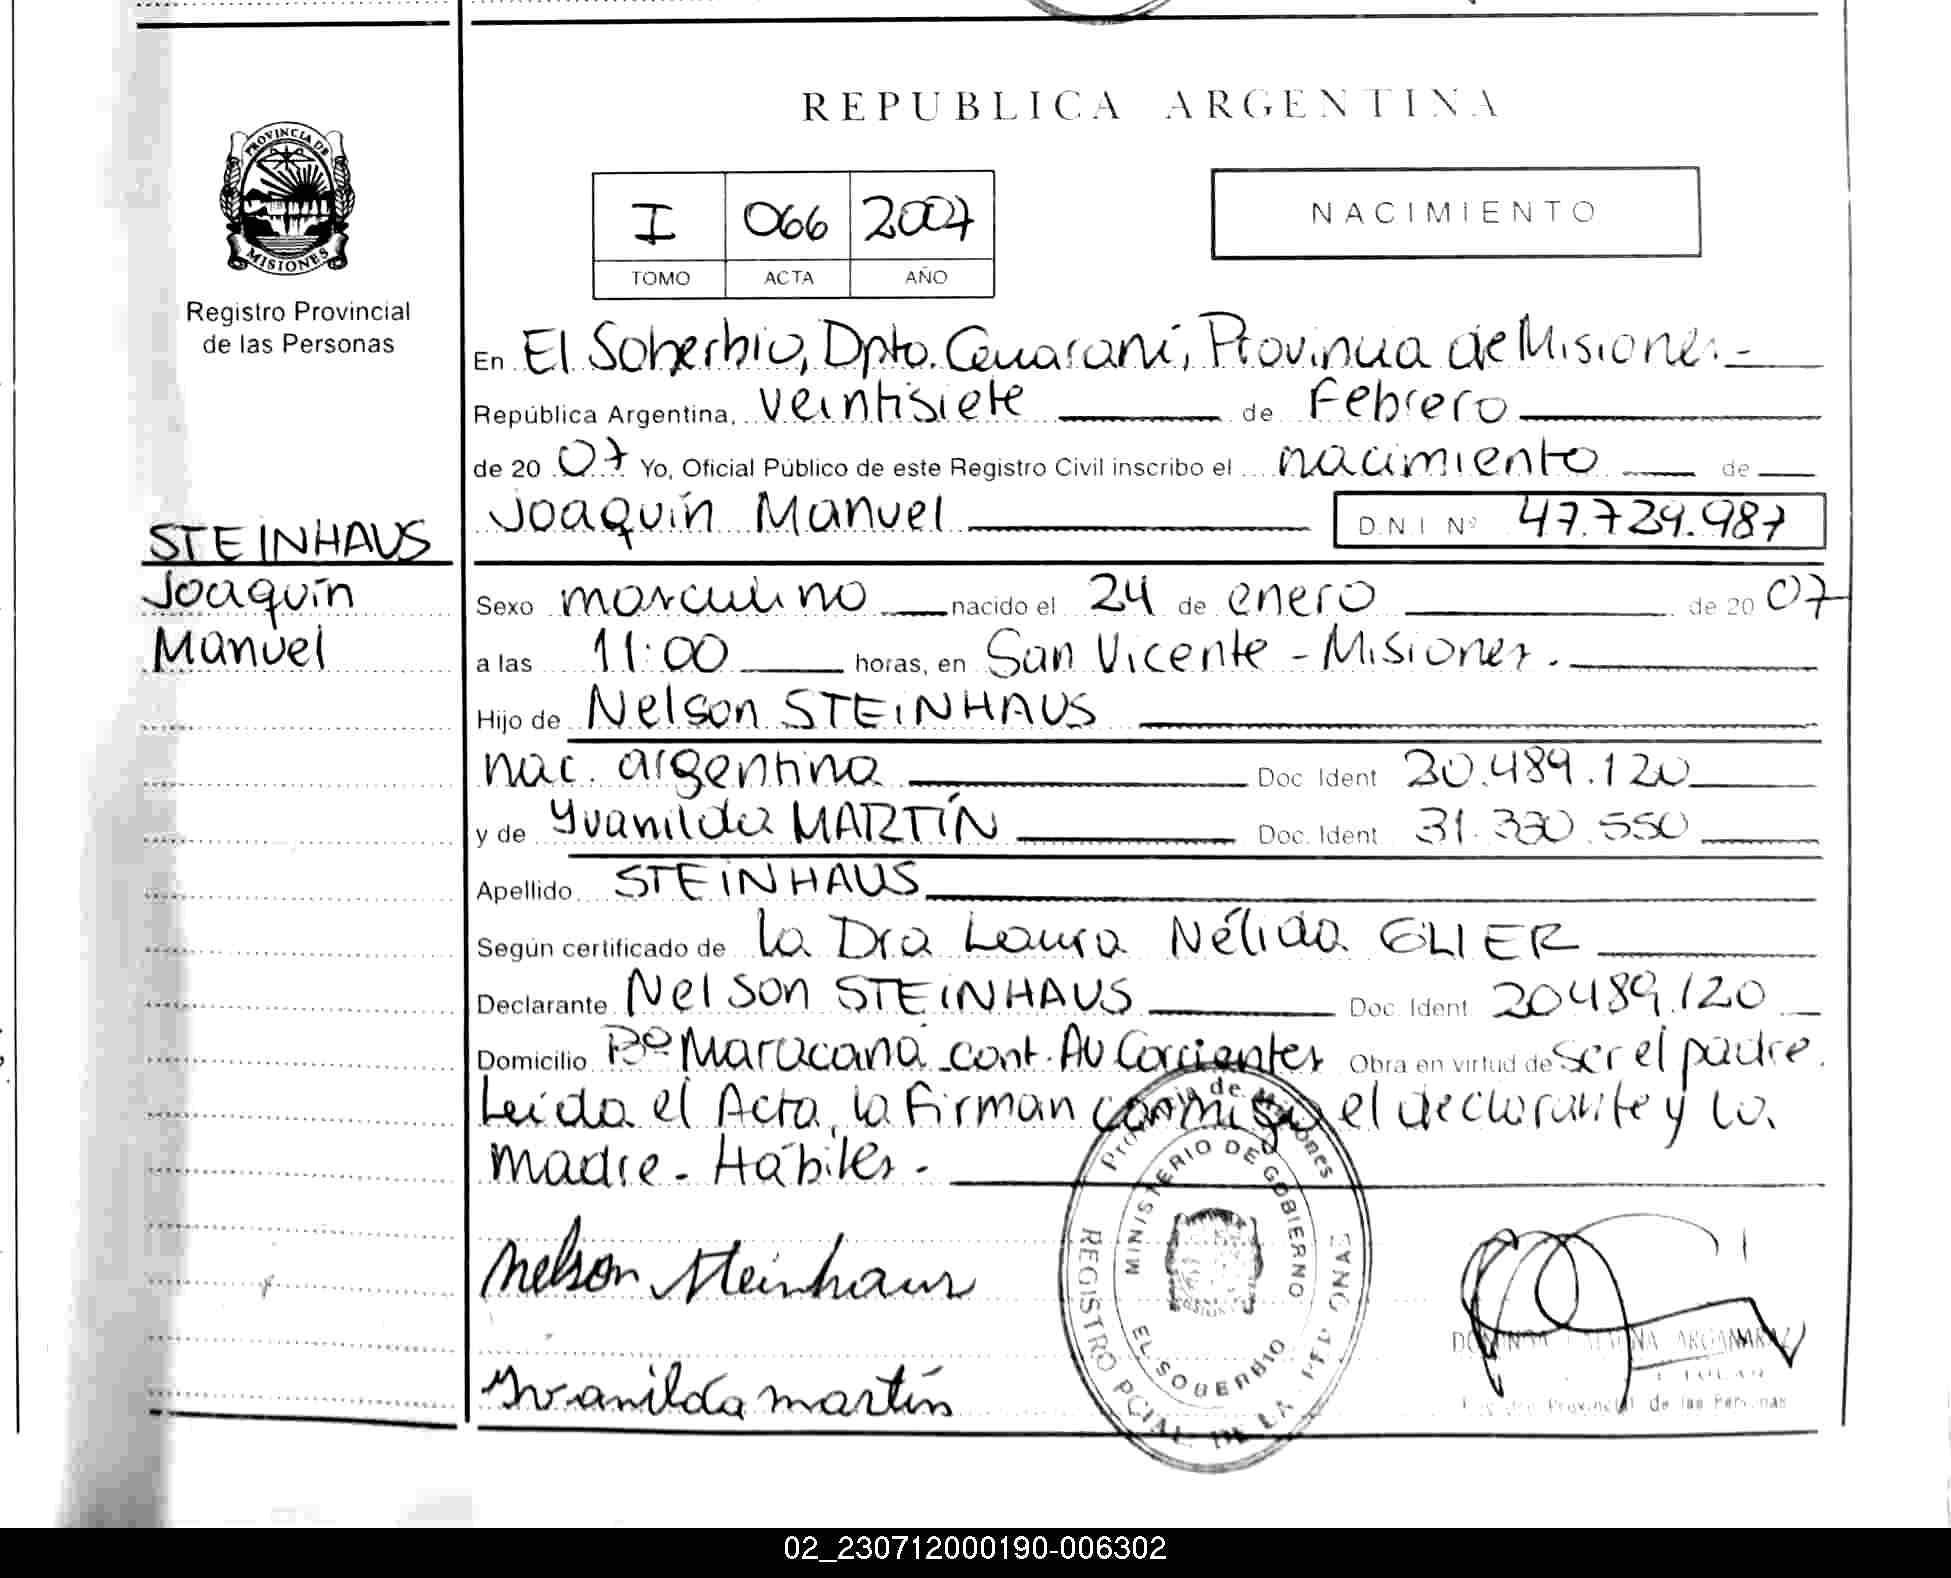 REPUBLICA ARGENTINA
PROVINCIA DE
MISIONES
Registro Provincial
de las Personas
I 066 2007
TOMO ACTA AÑO
NACIMIENTO
En El Soberbio, Dpto. Guaraní, Provincia de Misiones.-
República Argentina, veintisiete de Febrero
de 20 07 Yo, Oficial Público de este Registro Civil inscribo el nacimiento de
Joaquín Manuel D.N.I Nº 47.729.987
STEINHAUS
Joaquín
Manuel
Sexo masculino nacido el 24 de enero de 20 07
a las 11:00 horas, en San Vicente - Misiones.
Hijo de Nelson STEINHAUS
nac. argentina Doc Ident 20.489.120
y de Yvanilda MARTÍN Doc. Ident 31.330.550
Apellido STEINHAUS
Según certificado de la Dra Laura Nélida GLIER
Declarante Nelson STEINHAUS Doc. Ident 20489.120
Domicilio Bº Maracaná cont. Av Corrientes Obra en virtud de ser el padre.
Leída el Acta, la firman conmigo el declarante y la
madre - Hábiles -
Provincia de Misiones
MINISTERIO DE GOBIERNO
EL SOBERBIO
REGISTRO PCIAL. DE LA
Nelson Steinhaus
Yvanilda martín
Provincial de las Personas
02_230712000190-006302